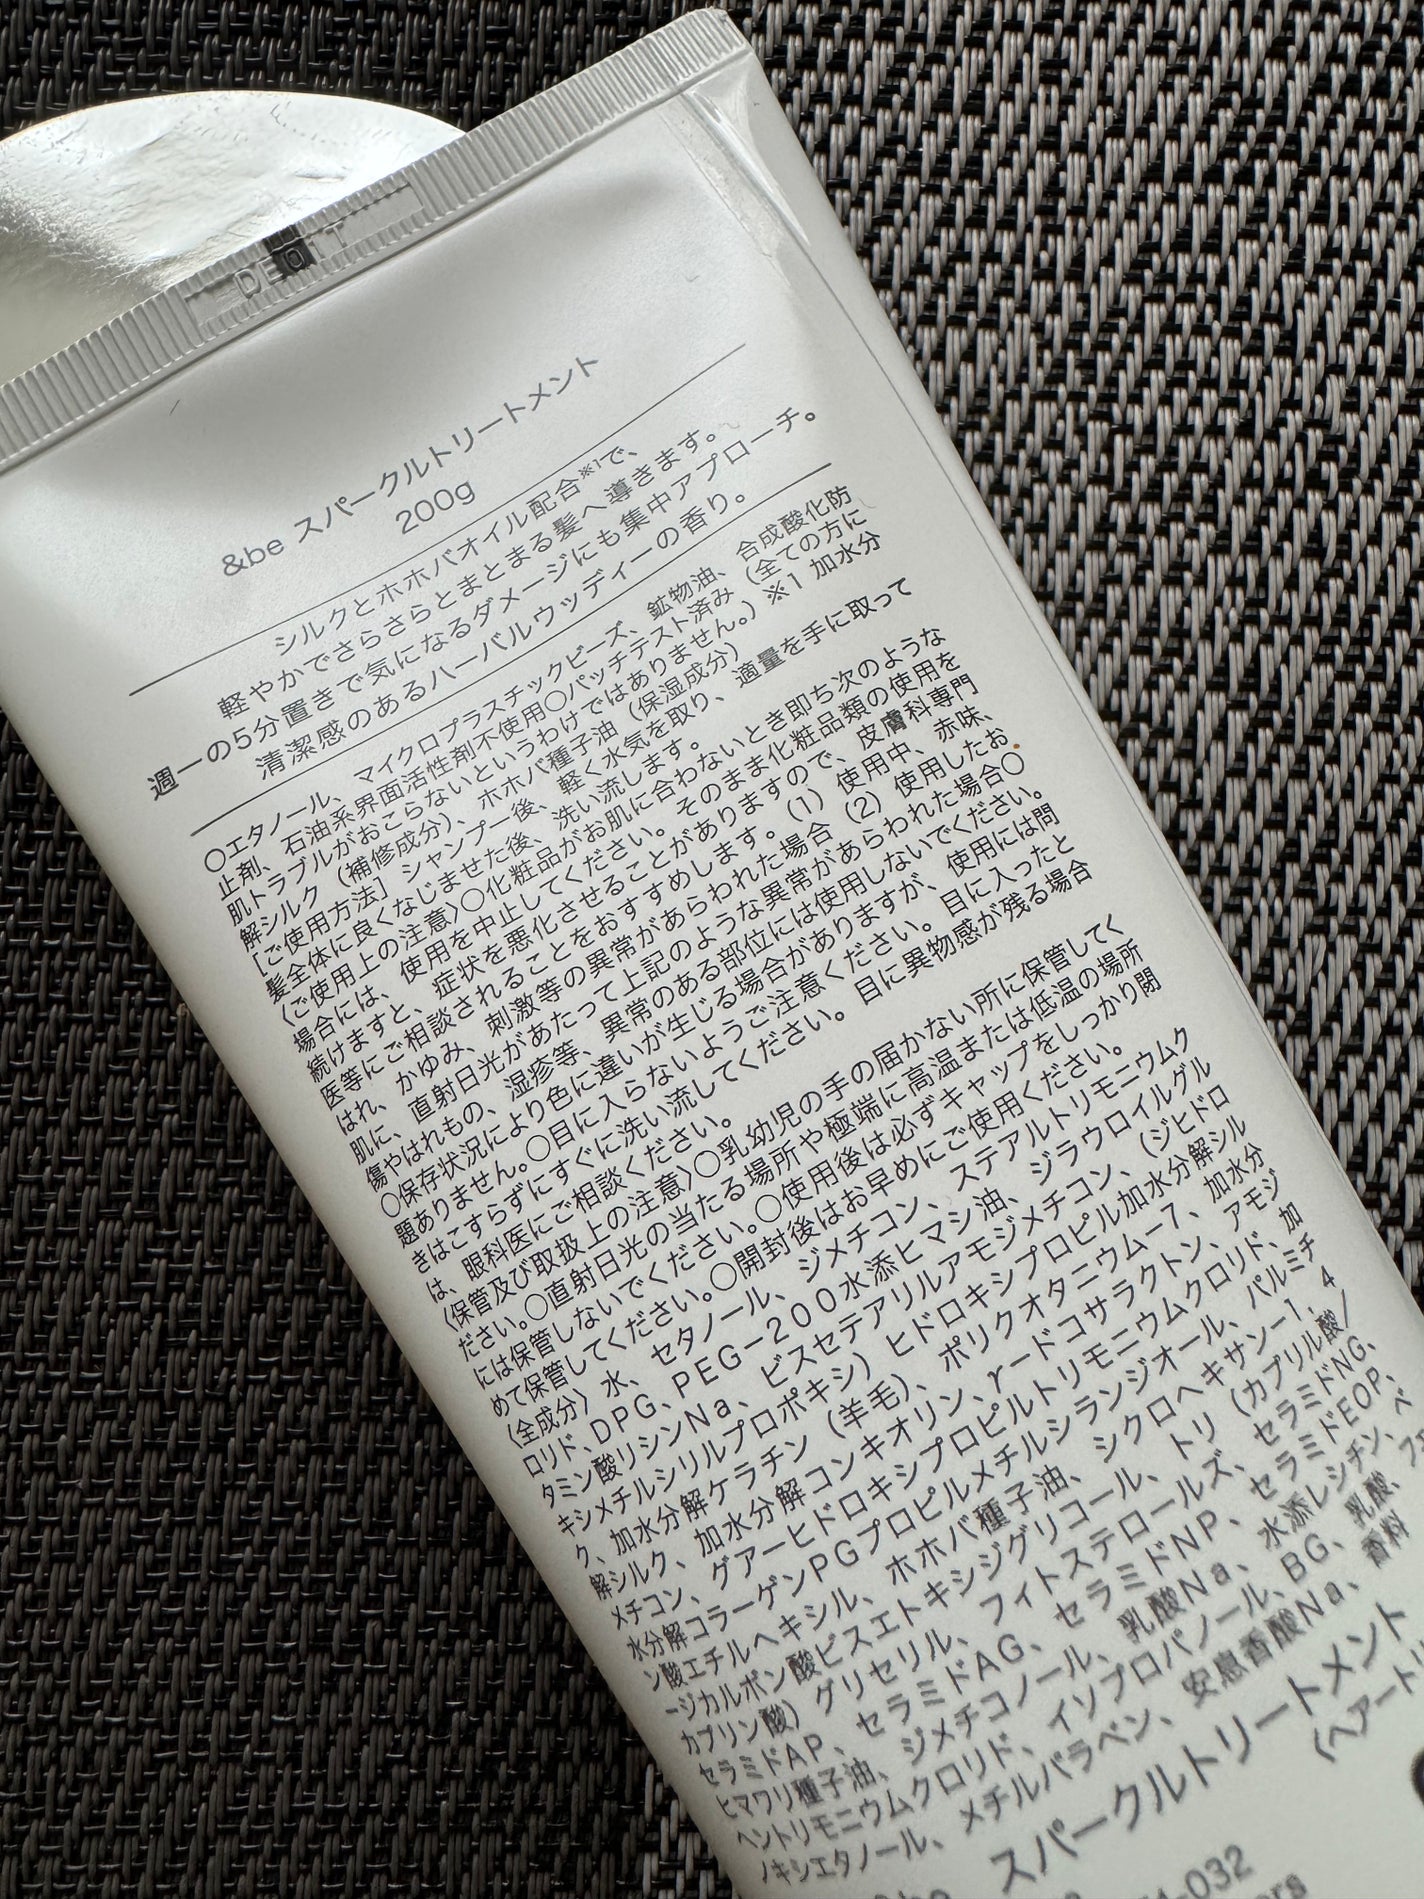 &be スパークルトリートメント
200g
シルクとホホバオイル配合※1で、
軽やかでさらさらとまとまる髪へ導きます。
週一の5分置きで気になるダメージにも集中アプローチ。
清潔感のあるハーバルウッディーの香り。
〇エタノール、マイクロプラスチックビーズ、鉱物油、合成酸化防
止剤、石油系界面活性剤不使用〇パッチテスト済み（全ての方に
肌トラブルがおこらないというわけではありません。）※1 加水分
解シルク（補修成分）、ホホバ種子油（保湿成分）
［ご使用方法］シャンプー後、軽く水気を取り、適量を手に取って
髪全体に良くなじませた後、洗い流します。
〈ご使用上の注意〉〇化粧品がお肌に合わないとき即ち次のような
場合には、使用を中止してください。そのまま化粧品類の使用を
続けますと、症状を悪化させることがありますので、皮膚科専門
医等にご相談されることをおすすめします。（1）使用中、赤味、
はれ、かゆみ、刺激等の異常があらわれた場合（2）使用したお
肌に、直射日光があたって上記のような異常があらわれた場合〇
傷やはれもの、湿疹等、異常のある部位には使用しないでください。
〇保存状況により色に違いが生じる場合がありますが、使用には問
題ありません。〇目に入らないようご注意ください。目に入ったと
きはこすらずにすぐに洗い流してください。目に異物感が残る場合
は、眼科医にご相談ください。
〈保管及び取扱上の注意〉〇乳幼児の手の届かない所に保管してく
ださい。〇直射日光の当たる場所や極端に高温または低温の場所
には保管しないでください。〇使用後は必ずキャップをしっかり閉
めて保管してください。〇開封後はお早めにご使用ください。
〈全成分〉水、セタノール、ジメチコン、ステアルトリモニウムク
ロリド、DPG、PEG－200水添ヒマシ油、ジラウロイルグル
タミン酸リシンNa、ビスセテアリルアモジメチコン、（ジヒドロ
キシメチルシリルプロポキシ）ヒドロキシプロピル加水分解シル
ク、加水分解ケラチン（羊毛）、ポリクオタニウム－7、加水分
解シルク、加水分解コンキオリン、γ－ドコサラクトン、アモジ
メチコン、グアーヒドロキシプロピルトリモニウムクロリド、加
水分解コラーゲンPGプロピルメチルシランジオール、パルミチ
ン酸エチルヘキシル、ホホバ種子油、シクロヘキサン－1，4
－ジカルボン酸ビスエトキシジグリコール、トリ（カプリル酸／
カプリン酸）グリセリル、フィトステロールズ、セラミドNG、
セラミドAP、セラミドAG、セラミドNP、セラミドEOP、
ヒマワリ種子油、ジメチコノール、乳酸Na、水添レシチン、ベ
ヘントリモニウムクロリド、イソプロパノール、BG、乳酸、フェ
ノキシエタノール、メチルパラベン、安息香酸Na、香料
スパークルトリートメント